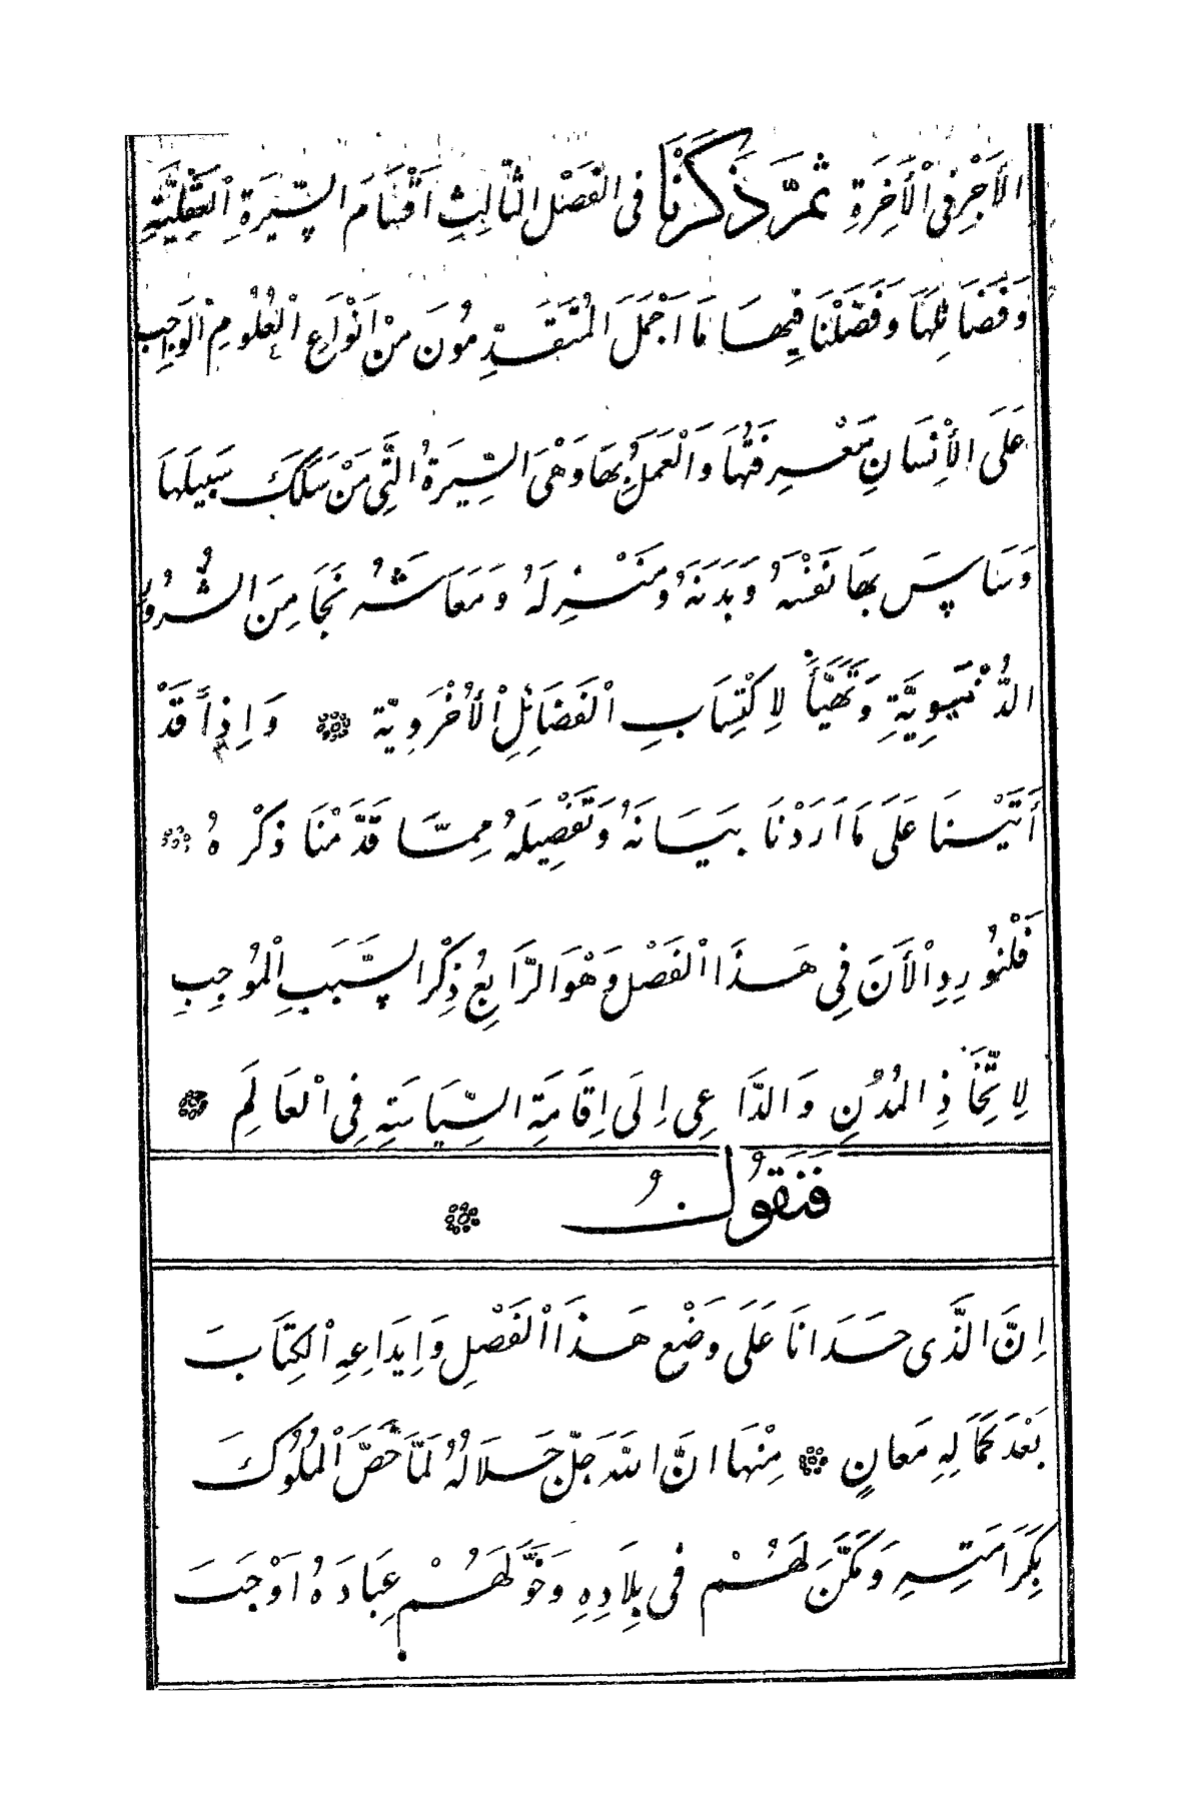 الْأَجْرِ فِى الْأَخِرَةِ ثُمَّ ذَكَرْنَا فِى الْفَصْلِ الثَّالِثِ اَقْسَامَ السِّيرَةِ الْعَقْلِيَّةِ
وَفَضَائِلِهَا وَفَصَّلْنَا فِيهَا مَا اَجْمَلَ الْمُتَقَدِّمُونَ مِنْ اَنْوَاعِ الْعُلُومِ الْوَاجِبِ
عَلَى الْأِنْسَانِ مَعْرِفَتُهَا وَالْعَمَلُ بِهَا وَهْىَ السِّيرَةُ الَّتِى مَنْ سَلَكَ سَبِيلَهَا
وَسَاسَ بِهَا نَفْسَهُ وَبَدَنَهُ وَمَنْزِلَهُ وَمَعَاشَهُ نَجَا مِنَ الشُّرُورِ
الدُّنْيَوِيَّةِ وَتَهَيَّأَ لِاِكْتِسَابِ الْفَضَائِلِ الْأُخْرَوِيَّة ۞ وَاِذاً قَدْ
أَتَيْنَا عَلَى مَا اَرَدْنَا بَيَانَهُ وَتَفْصِيلَهُ مِمَّا قَدَّمْنَا ذِكْرَهُ ۞
فَلْنُورِدِ الْأَنَ فِى هَذَا الْفَصْلِ وَهْوَ الرَّابِعُ ذِكْرَ السَّبَبِ الْمُوجِبِ
لِاتِّخَاذِ الْمُدُنِ وَالدَّاعِى اِلَى اِقَامَةِ السِّيَاسَةِ فِى الْعَالَمِ ۞
فَنَقُولُ ۞
اِنَّ الَّذِى حَدَانَا عَلَى وَضْعِ هَذَا الْفَصْلِ وَاِيدَاعِهِ الْكِتَابَ
بَعْدَ كَمَالِهِ مَعَانٍ ۞ مِنْهَا اَنَّ اللّٰهَ جَلَّ جَلَالُهُ لَمَّا خَصَّ الْمُلُوكَ
بِكَرَامَتِهِ وَمَكَّنَ لَهُمْ فِى بِلَادِهِ وَخَوَّلَهُمْ عِبَادَهُ اَوْجَبَ